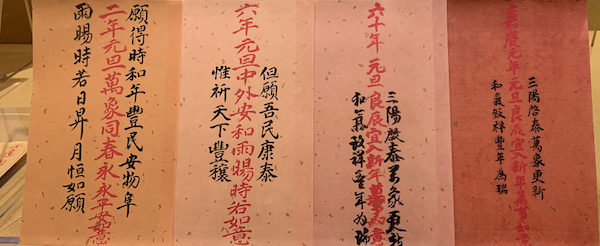 三陽啓泰萬象更新
慶元年元旦良辰宜入新年萬事如
和氣致祥豐年為瑞
三陽啟泰萬象更新
六十年元旦良辰宜入新年萬事如意
和氣致祥豐年為瑞
但願吾民康泰
六年元旦中外安和雨暘時若如意
惟祈天下豐穰
願得時和年豐民安物阜
二年元旦萬象同春永永平安如意
雨暘時若日昇月恒如願